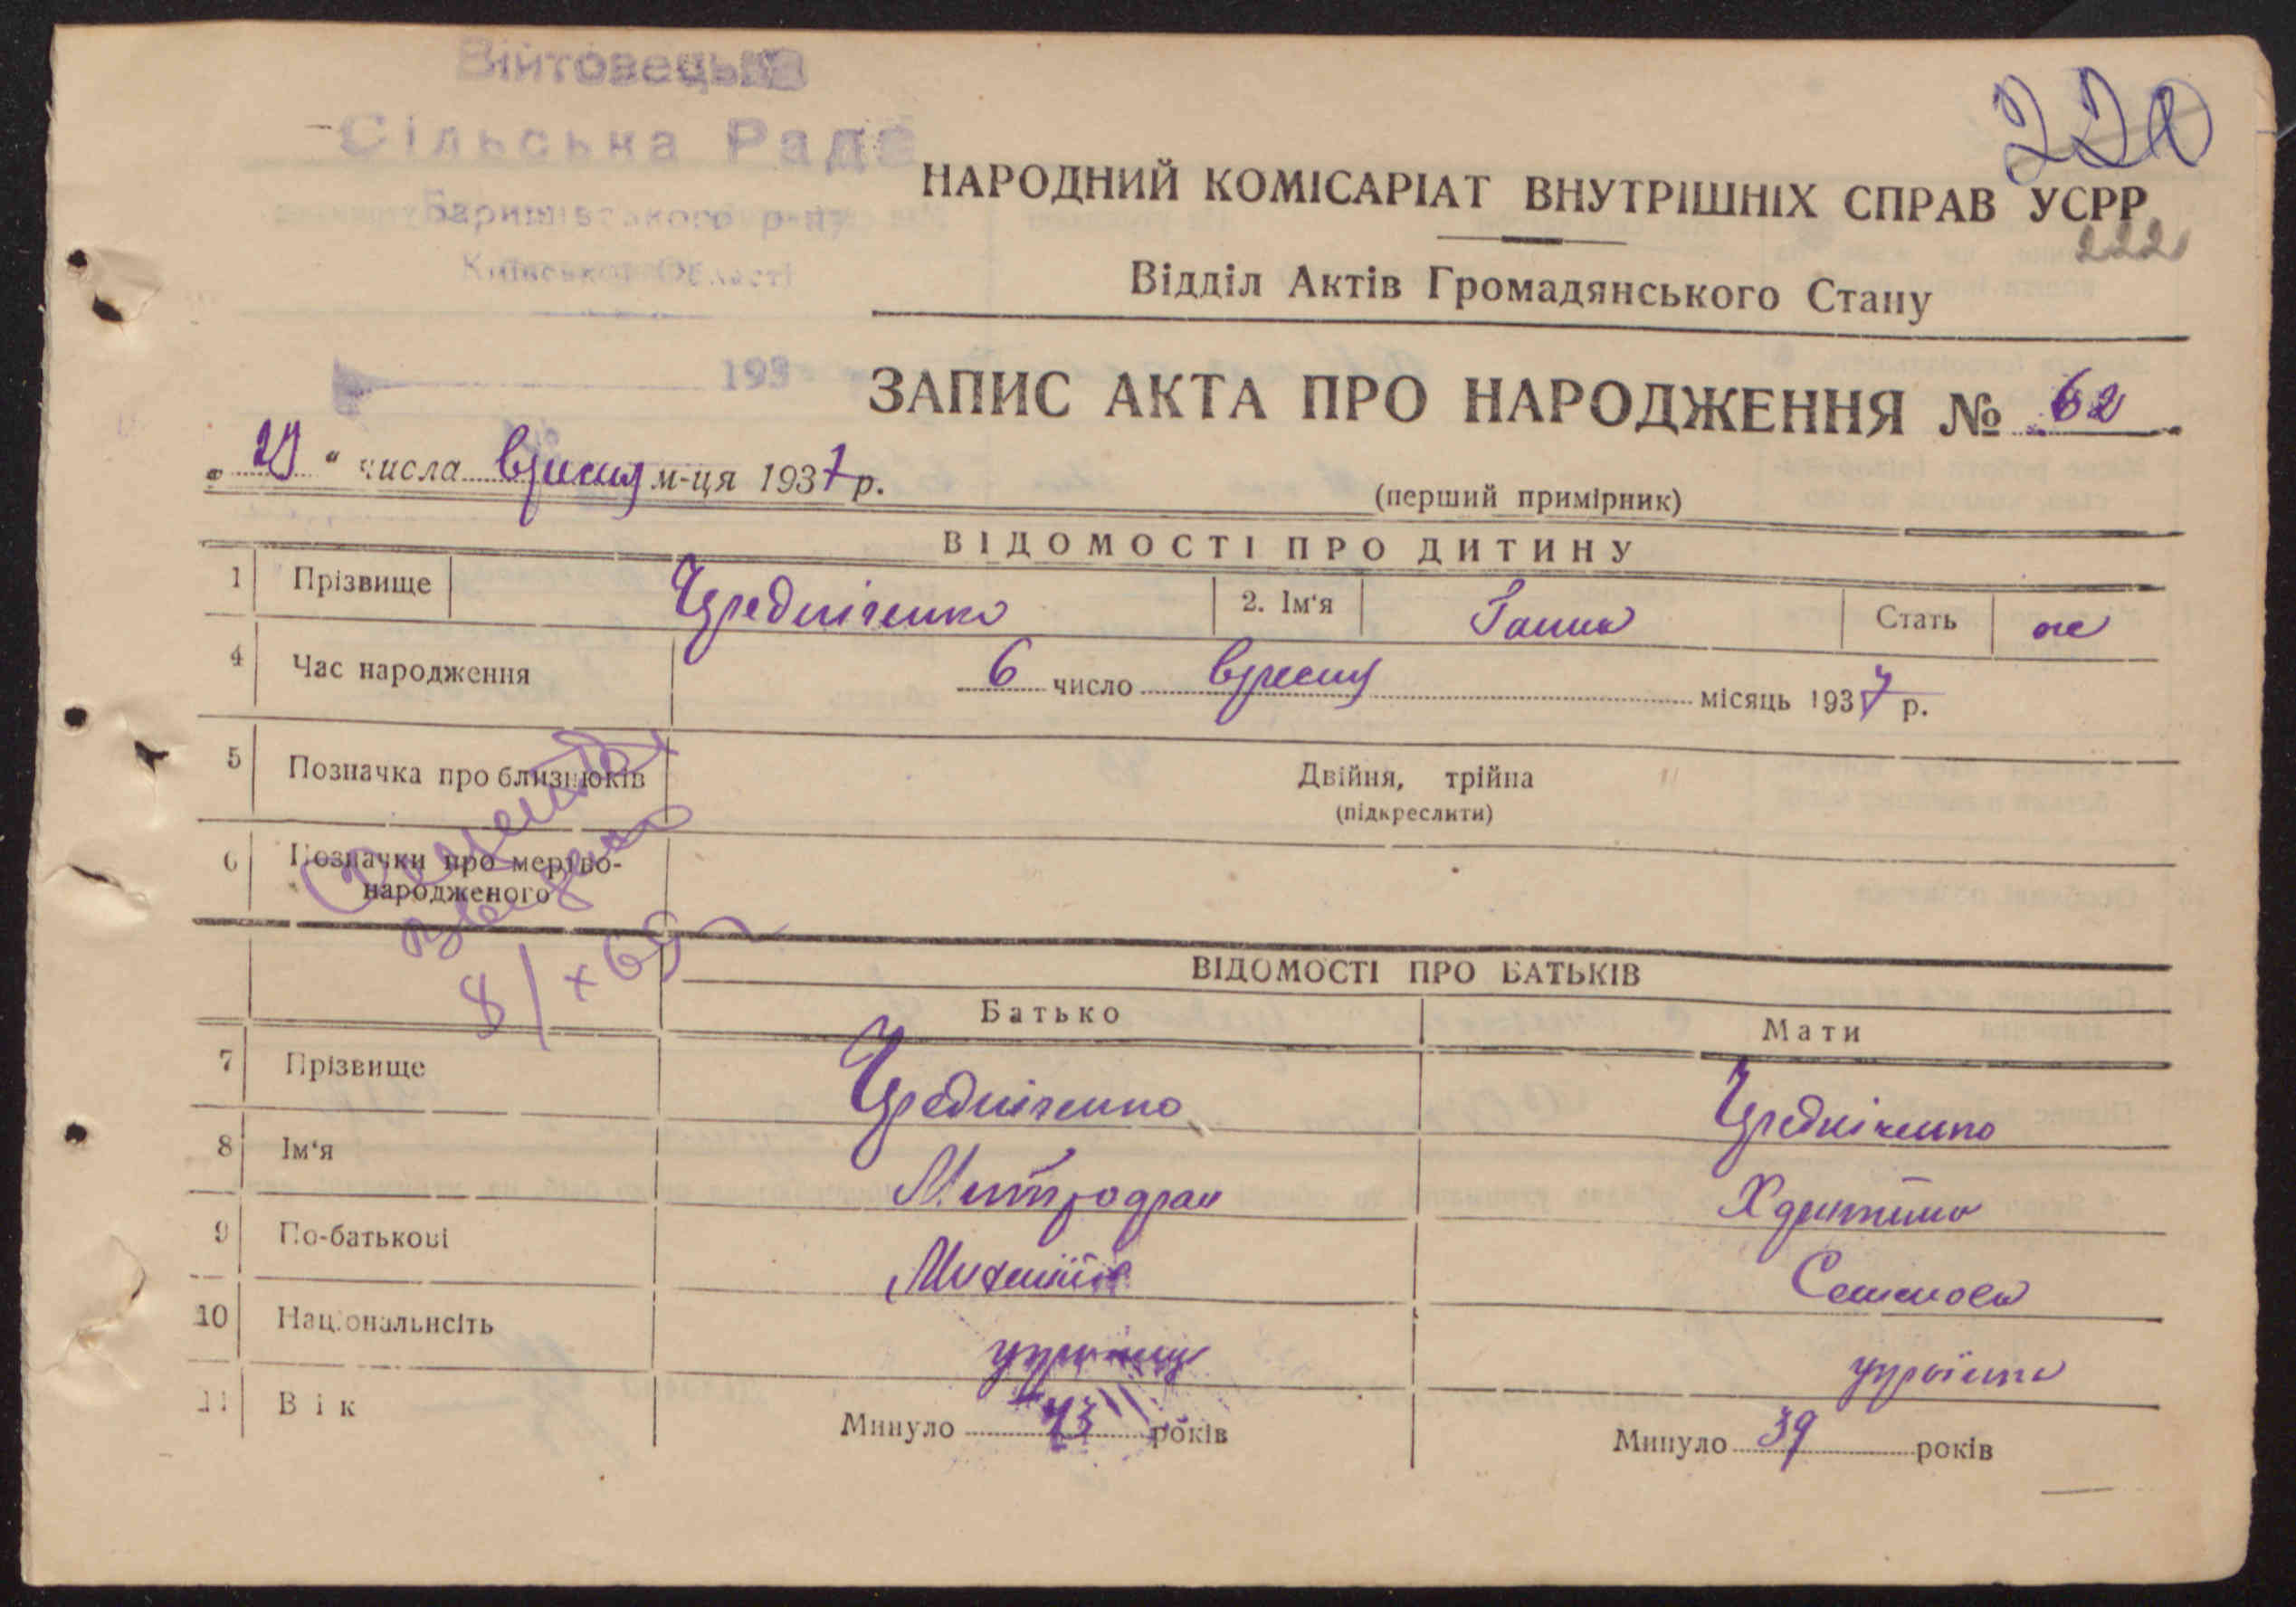 Війтовецька
Сільська Рада
Баришівського р-ну
Київської Області
193
220
НАРОДНИЙ КОМІСАРІАТ ВНУТРІШНІХ СПРАВ УСРР
222
Відділ Актів Громадянського Стану
ЗАПИС АКТА ПРО НАРОДЖЕННЯ № 62
„ 29 “ числа вересня м-ця 1937 р.
(перший примірник)
ВІДОМОСТІ ПРО ДИТИНУ
1 Прізвище Чередніченко 2. Ім‘я Ганна Стать ж
4 Час народження 6 число вересня місяць 1937 р.
5 Позначка про близнюків Двійня, трійна
(підкреслити)
6 Позначки про мертво-
народженого
8/X 69
ВІДОМОСТІ ПРО БАТЬКІВ
Батько Мати
7 Прізвище Чередніченко Чередніченко
8 Ім‘я Митрофан
9 По-батькові
10 Національнсіть українець українка
11 Вік Минуло 43 років Минуло 39 років